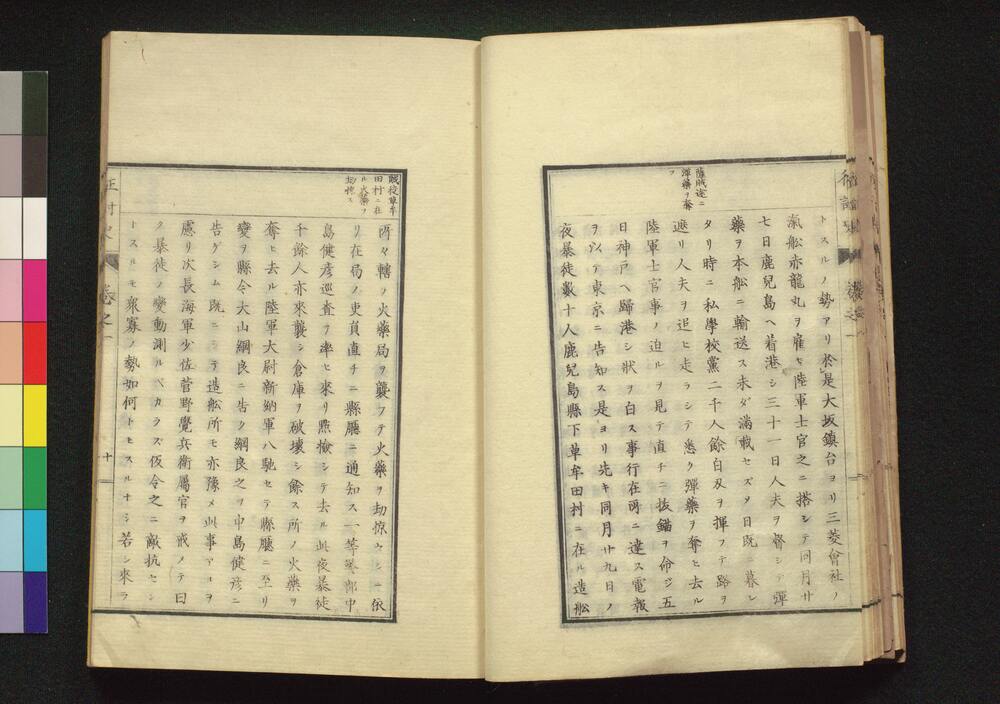 薩賊途ニ
彈藥ヲ奪
フ
トスルノ勢アリ於是大坂鎮台ヨリ三菱會社ノ
瀛舩赤龍丸ヲ雇ヒ陸軍士官之ニ搭シテ同月廿
七日鹿兒島ヘ着港シ三十一日人夫ヲ督シテ彈
藥ヲ本舩ニ輸送ス未ダ満載セズメ日既ニ暮レ
タリ時ニ私學校黨二千人餘白刄ヲ揮フテ路ヲ
遮リ人夫ヲ追ヒ走ラシテ悉ク彈藥ヲ奪ヒ去ル
陸軍士官事ノ迫ルヲ見テ直チニ抜錨ヲ命ジ五
日神戸ヘ歸港シ狀ヲ白ス事行在所ニ達ス電報
ヲ以テ東京ニ告知ス是ヨリ先キ同月廿九日ノ
夜暴徒数十人鹿兒島縣下草牟田村ニ在ル造舩
賊徒草牟
田村ニ在
ル火藥ヲ
劫掠ス
所々轄ノ火藥局ヲ襲フテ火藥ヲ劫掠セシニ依
リ在局ノ吏員直チニ縣廳ニ通知ス一等警部中
島健彦巡査ヲ率ヒ來リ點撿シテ去ル此夜暴徒
千餘人亦來襲シ倉庫ヲ破壊シ餘ス所ノ火藥ヲ
奪ヒ去ル陸軍大尉新納軍八馳セテ縣廳ニ至リ
變ヲ縣令大山綱良ニ告ク綱良之ヲ中島健彦ニ
告グシム既ニシテ造舩所モ亦豫メ此事アルヲ
慮リ次長海軍少佐菅野覺兵衛屬官ヲ戒メテ曰
ク暴徒ノ變動測ルベカラズ仮令之ニ敵抗セン
トスルモ衆寡ノ勢如何トモスルナシ若シ來ラ
征討史
卷之一
十